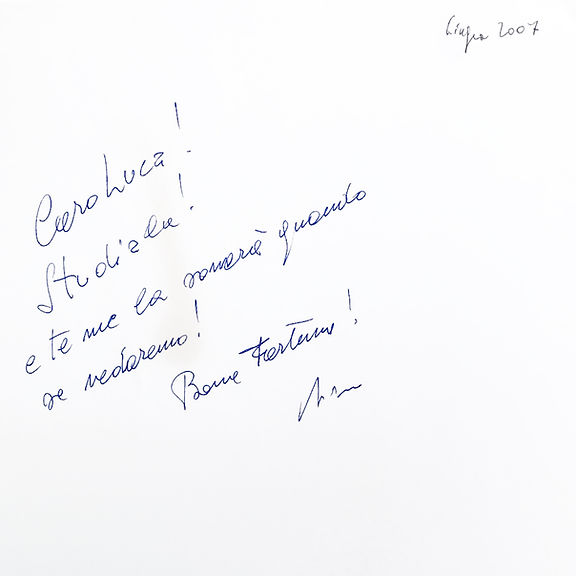 Giugno 2007
Caro Luca!
Studiala!
e te me la sonerà quando
se vedaremo!
Bona Fortuna!